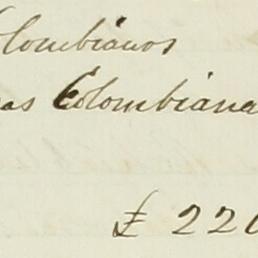 Colombianos
as Colombiana
£ 220